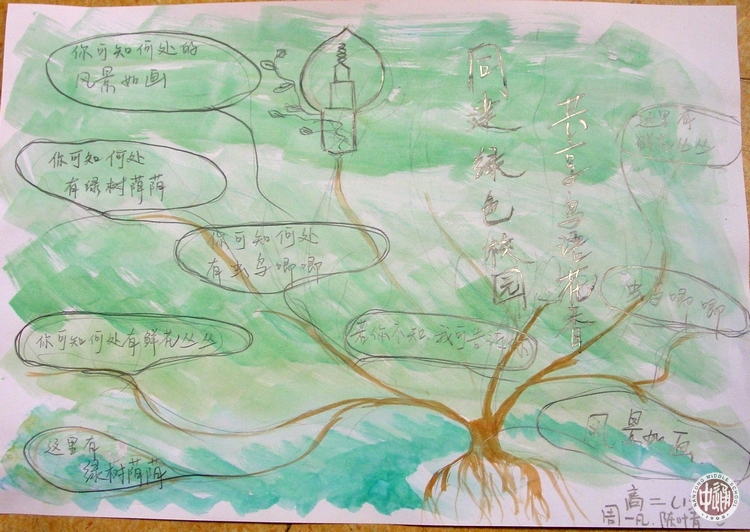 你可知何处的
风景如画
你可知何处
有绿树荫荫
你可知何处
有虫鸟唧唧
你可知何处有鲜花丛丛
若你不知,我可告诉你
这里有
绿树荫荫
同建绿色校园
共享鸟语花香
这里有
鲜花丛丛
虫鸟唧唧
风景如画
高二(1)
周一凡 陈叶青